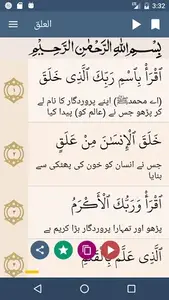 3:32
العلق
بِسْمِ اللهِ الرَّحْمٰنِ الرَّحِيْمِ
ٱقْرَأْ بِٱسْمِ رَبِّكَ ٱلَّذِى خَلَقَ
(اے محمدﷺ) اپنے پروردگار کا نام لے
کر پڑھو جس نے (عالم کو) پیدا کیا
١
خَلَقَ ٱلْإِنسَٰنَ مِنْ عَلَقٍ
جس نے انسان کو خون کی پھٹکی سے
بنایا
٢
ٱقْرَأْ وَرَبُّكَ ٱلْأَكْرَمُ
پڑھو اور تمہارا پروردگار بڑا کریم ہے
٣
ٱلَّذِى عَلَّمَ بِٱلْقَلَمِ